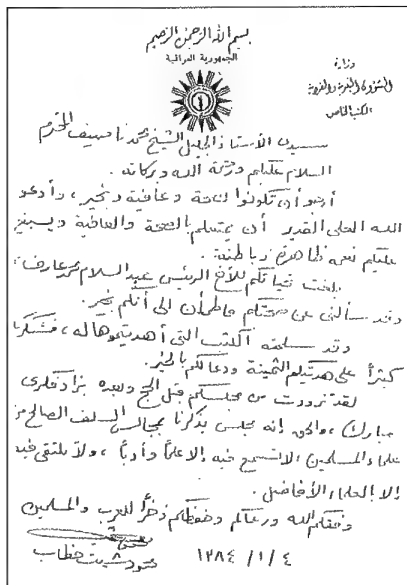 بسم الله الرحمن الرحيم
الجمهورية العراقية
وزارة
الشؤون البلدية والقروية
المكتب الخاص
سيدي الأستاذ الجليل الشيخ محمد نصيف المحترم
السلام عليكم ورحمة الله وبركاته.
أرجو أن تكونوا بصحة وعافية وبخير، وأدعو
الله العلي القدير أن يمتعكم بالصحة والعافية ويسبغ
عليكم نعمه ظاهرة وباطنة.
بلغت تحياتكم للأخ الرئيس عبد السلام محمد عارف،
وقد سألني عن صحتكم فاطمأن إلى أنكم بخير.
وقد سلمته الكتب التي أهديتموها له، فشكركم
كثيراً على هديتكم الثمينة ودعا لكم بالخير.
لقد تزودت من مجلسكم قبل الحج وبعده بزاد فكري
مبارك، والحق إنه مجلس يذكرنا بمجالس السلف الصالح من
علماء المسلمين، لا تسمع فيه إلا علماً وأدباً، ولا يلتقي فيه
إلا بالعلماء الأفاضل.
وفقكم الله ورعاكم وحفظكم ذخراً للعرب والمسلمين
محمود شيت خطاب
١٣٨٤/١/٤